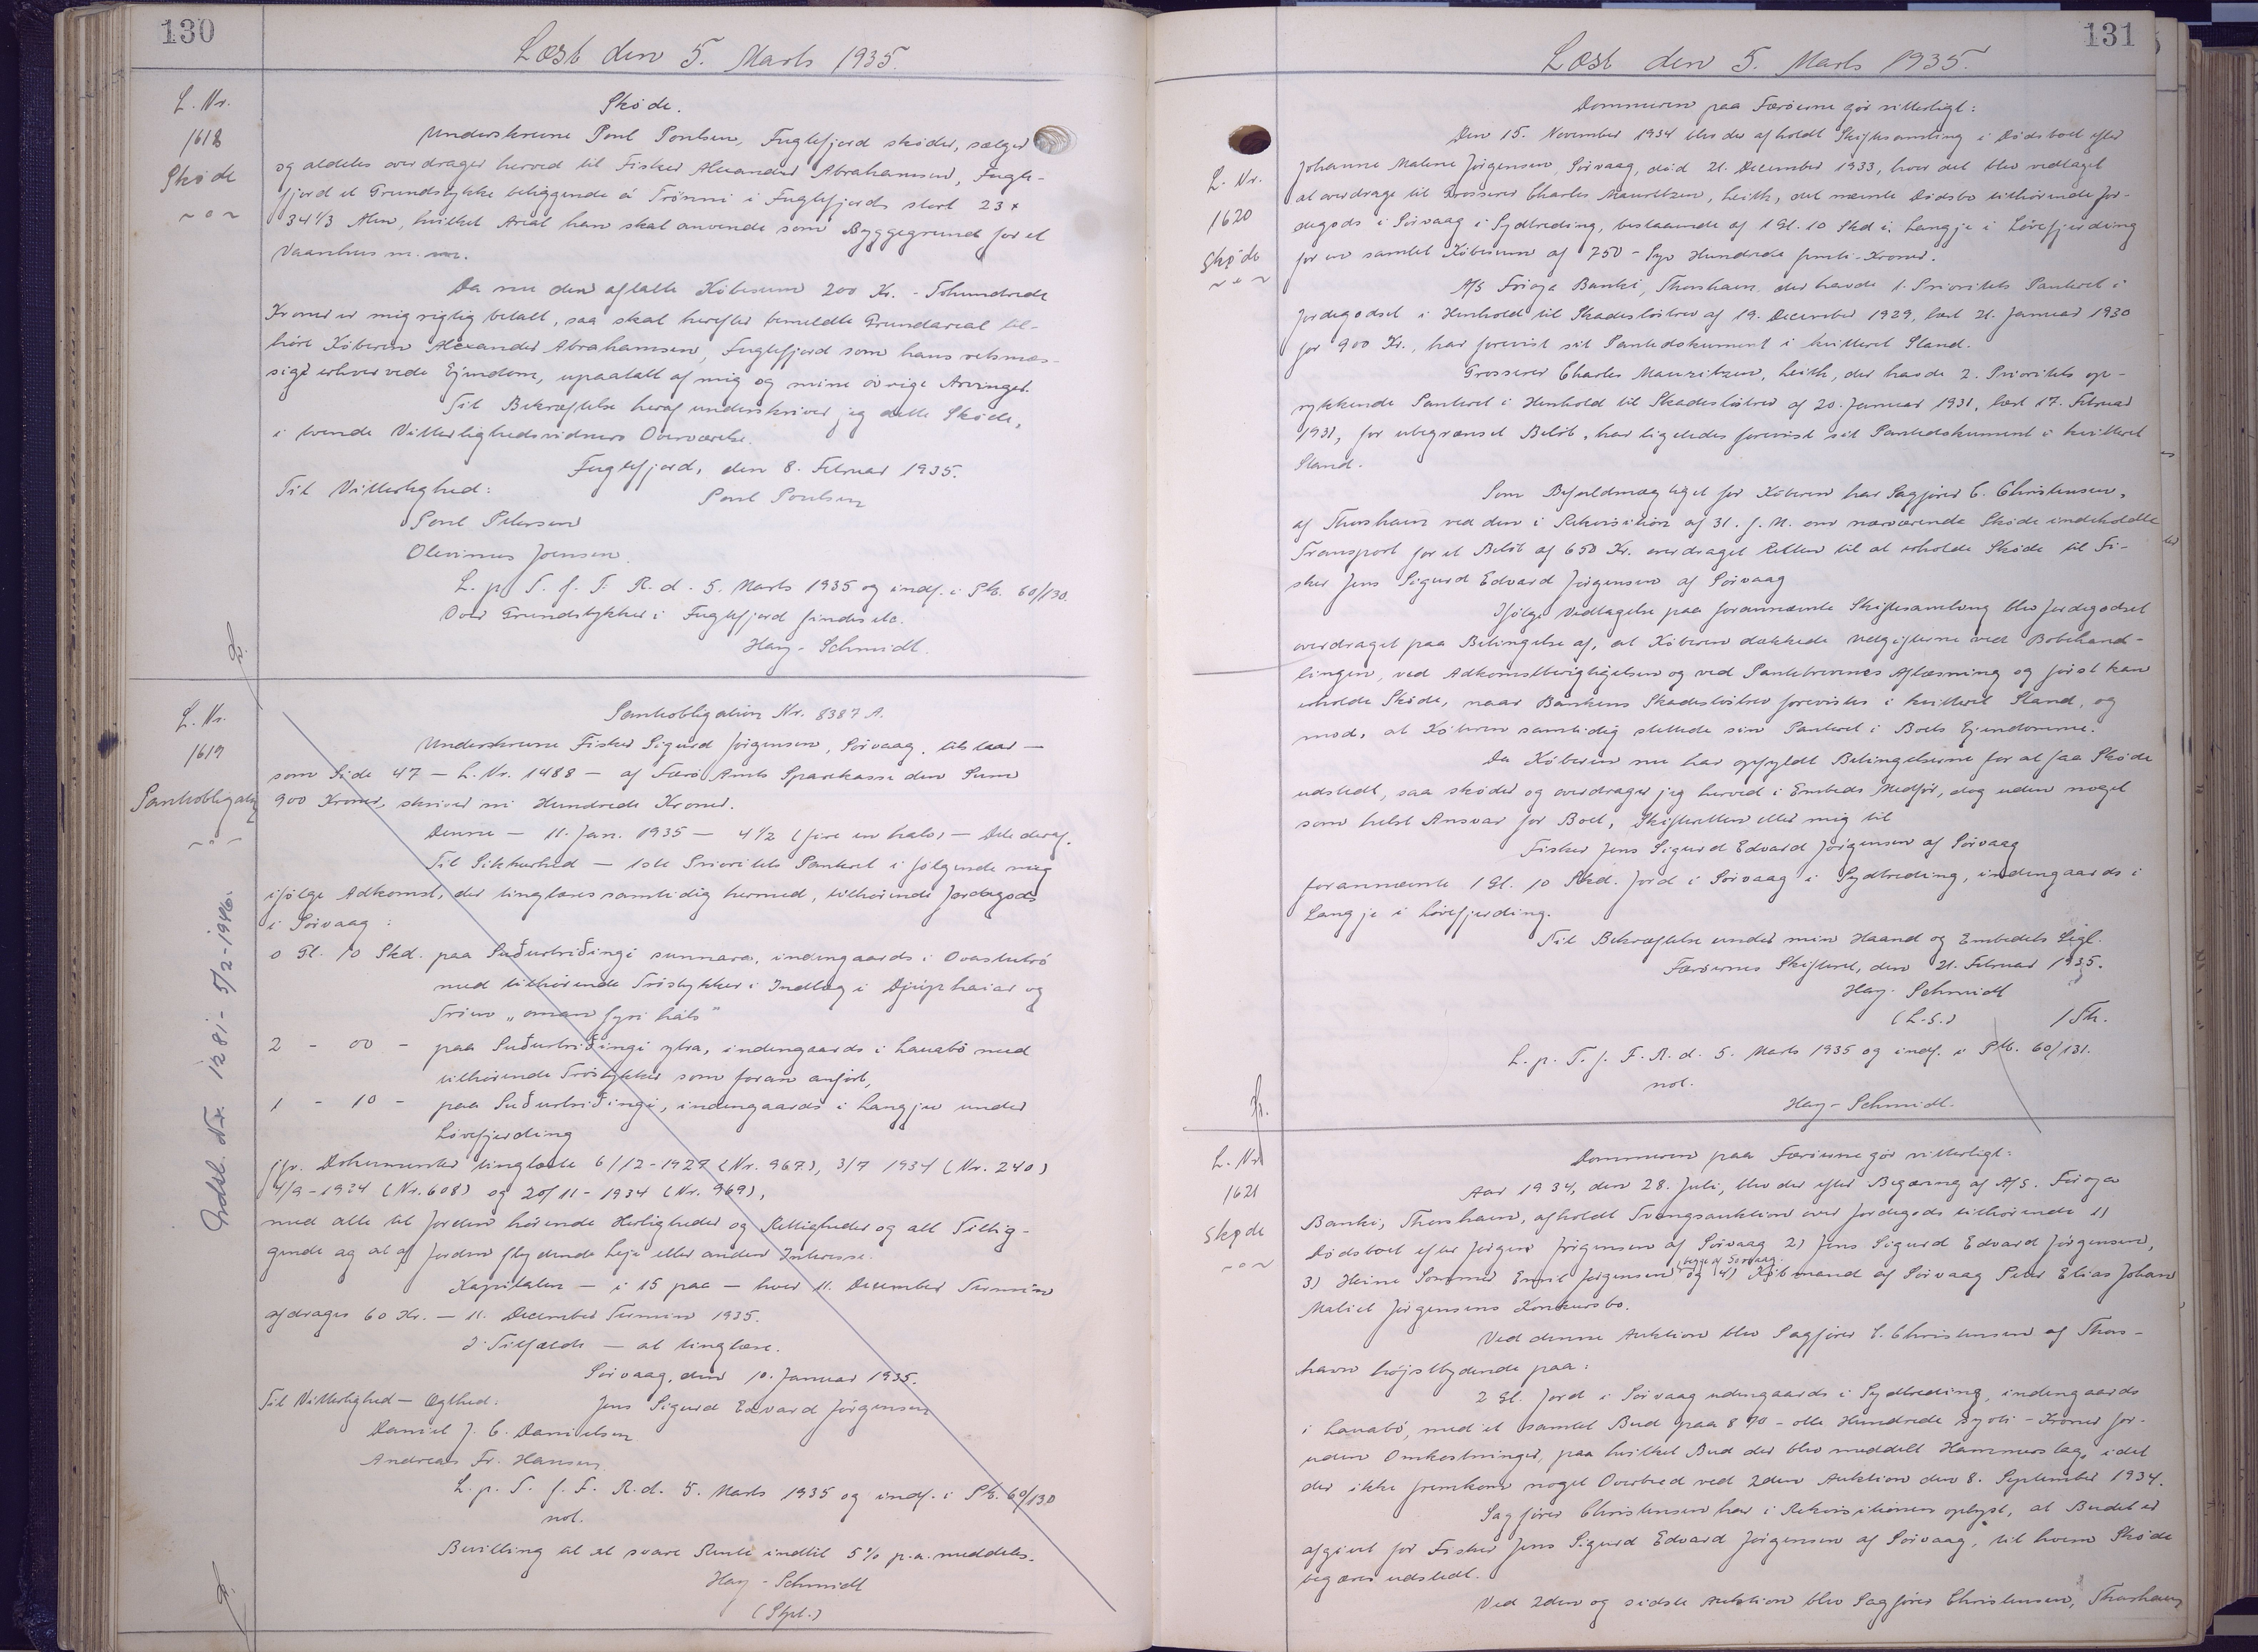 130
Læst den 5. Marts 1935.
L. Nr.
1618
Skøde
Skøde.
Underskrevne Poul Poulsen, Fuglefjord skøder, sælger
og aldeles overdrager herved til Fisker Alexander Abrahamsen, Fugle-
fjord et Grundstykke beliggende á Trönni i Fuglefjord, stort 23 x
34 1/3 Alen, hvilket Areal han skal anvende som Byggegrund for et
Vaanhus m. m.
Da nu den aftalte Købesum 200 Kr. - Tohundrede
Kroner er mig rigtig betalt, saa skal herefter bemeldte Grundareal til-
høre Køberen Alexander Abrahamsen, Fuglefjord som hans retsmæs-
sigt erhvervede Ejendom, upaatalt af mig og mine øvrige Arvinger.
Til Bekræftelse heraf underskriver jeg dette Skøde,
i tvende Vitterlighedsvidners Overværelse.
Fuglefjord, den 8. Februar 1935.
Til Vitterlighed:
Poul Poulsen
Poul Petersen
Olevinus Joensen.
L. p. T. f. F. R. d. 5. Marts 1935 og indf. i Pb. 60/130.
Over Grundstykker i Fuglefjord findes etc.
Hay-Schmidt.
L. Nr.
1619
Panteobligation
Panteobligation Nr. 8387 A.
Underskrevne Fisker Sigurd Jørgensen, Sørvaag, tilstaar —
som Side 47 — L. Nr. 1488 — af Færø Amts Sparekasse den Sum
900 Kroner, skriver ni Hundrede Kroner.
Denne — 11. Jan. 1935 — 4 1/2 (fire en halv) — Dele deraf.
Til Sikkerhed — 1ste Prioritets Panteret i følgende mig
ifølge Adkomst, der tinglæses samtidig hermed, tilhørende Jordegods
i Sørvaag:
0 Gl. 10 Skd. paa Suðurtriðingi sunnara, indengaards i Ovastubø
med tilhørende Tröstykker i Indlæg i Djúphaiar og
Tröen "oman fyri háls"
2 - 00 - paa Suðurtriðingi ytra, indengaards i Lauabø med
tilhørende Tröstykker som foran anført,
1 - 10 - paa Suðurtriðingi, indengaards i Langju under
Løvefjerding
jfr. Dokumenter tinglæste 6/12-1927 (Nr. 967), 3/7 1934 (Nr. 240)
4/9-1934 (Nr. 608) og 20/11-1934 (Nr. 969),
med alle til Jorden hørende Herligheder og Rettigheder og alt Tillig-
gende og al af Jorden flydende Leje eller anden Interesse.
Kapitalen — i 15 paa — hver 11. December Termin
afdrages 60 Kr. — 11. December Termin 1935.
I Tilfælde — at tinglæse.
Sørvaag, den 10. Januar 1935.
Til Vitterlighed — Ægthed:
Jens Sigurd Edvard Jørgensen
Daniel J. C. Danielsen
Andreas Fr. Hansen
L. p. T. f. F. R. d. 5. Marts 1935 og indf. i Pb. 60/130
not.
Bevilling til at svare Rente indtil 5% p. a. meddeles.
Hay-Schmidt
(Stpl.)
Indsl. Nr. 1281 - 5/2-1946.
131
Læst den 5. Marts 1935.
L. Nr.
1620
Skøde
Dommeren paa Færøerne gør vitterligt:
Den 15. November 1934 blev der afholdt Skiftesamling i Dødsboet efter
Johanne Malene Jørgensen, Sørvaag, død 21. December 1933, hvor det blev vedtaget
at overdrage til Grosserer Charles Mauritzen, Leith, det nævnte Dødsbo tilhørende Jor-
degods i Sørvaag i Sydtreding, bestaaende af 1 Gl. 10 Skd i Langje i Løvefjerding
for en samlet Købesum af 750 - Syv Hundrede femti - Kroner.
A/S Føroya Banki, Thorshavn, der havde 1. Prioritets Panteret i
Jordegodset i Henhold til Skadesløsbrev af 19. December 1929, læst 21. Januar 1930
for 900 Kr., har forevist sit Pantedokument i kvitteret Stand.
Grosserer Charles Mauritzen, Leith, der havde 2. Prioritets op-
rykkende Panteret i Henhold til Skadesløsbrev af 20. Januar 1931, læst 17. Februar
1931, for ubegrænset Beløb, har ligeledes forevist sit Pantedokument i kvitteret
Stand.
Som Befuldmægtiget for Køberen har Sagfører C. Christensen,
af Thorshavn ved den i Rekvisition af 31. f. M. om nærværende Skøde indeholdte
Transport for et Beløb af 650 Kr. overdraget Retten til at erholde Skøde til Fi-
sker Jens Sigurd Edvard Jørgensen af Sørvaag
Ifølge Vedtagelse paa forannævnte Skiftesamling blev Jordegodset
overdraget paa Betingelse af, at Køberen dækkede Udgifterne ved Bobehand-
lingen, ved Adkomstberigtigelsen og ved Pantebrevenes Aflæsning og først kan
erholde Skøde, naar Bankens Skadesløsbrev forevistes i kvitteret Stand, og
mod, at Køberen samtidig slettede sin Panteret i Boets Ejendomme.
Da Køberen nu har opfyldt Betingelserne for at faa Skøde
udstedt, saa skøder og overdrager jeg herved i Embeds Medfør, dog uden noget
som helst Ansvar for Boet, Skifteretten eller mig til
Fisker Jens Sigurd Edvard Jørgensen af Sørvaag
forannævnte 1 Gl. 10 Skd. Jord i Sørvaag i Sydtreding, indengaards i
Langje i Løvefjerding.
Til Bekræftelse under min Haand og Embedets Segl.
Færøernes Skifteret, den 21. Februar 1935.
Hay-Schmidt
(L.S.) / Th.
L. p. T. f. F. R. d. 5. Marts 1935 og indf. i Pb. 60/131.
not.
Hay-Schmidt.
L. Nr.
1621
Skøde
Dommeren paa Færøerne gør vitterligt:
Aar 1934, den 28. Juli, blev der efter Begæring af A/S. Føroya
Banki, Thorshavn, afholdt Tvangsauktion over Jordegods tilhørende 1)
Dødsboet efter Jørgen Jørgensen af Sørvaag 2) Jens Sigurd Edvard Jørgensen,
3) Heine Sommer Emil Jørgensen (begge af Sørvaag) og 4) Købmand af Sørvaag Peter Elias Johan
Maliel Jørgensens Konkursbo.
Ved denne Auktion blev Sagfører C. Christensen af Thors-
havn højstbydende paa:
2 Gl. Jord i Sørvaag udengaards i Sydtreding, indengaards
i Lauabø, med et samlet Bud paa 870 - otte Hundrede syvti - Kroner for-
uden Omkostninger, paa hvilket Bud der blev meddelt Hammerslag, idet
der ikke fremkom noget Overbud ved 2den Auktion den 8. September 1934.
Sagfører Christensen har i Rekvisitionen oplyst, at Budet er
afgivet for Fisker Jens Sigurd Edvard Jørgensen af Sørvaag, til hvem Skøde
begæres udstedt.
Ved 2den og sidste Auktion blev Sagfører Christensen, Thorshavn